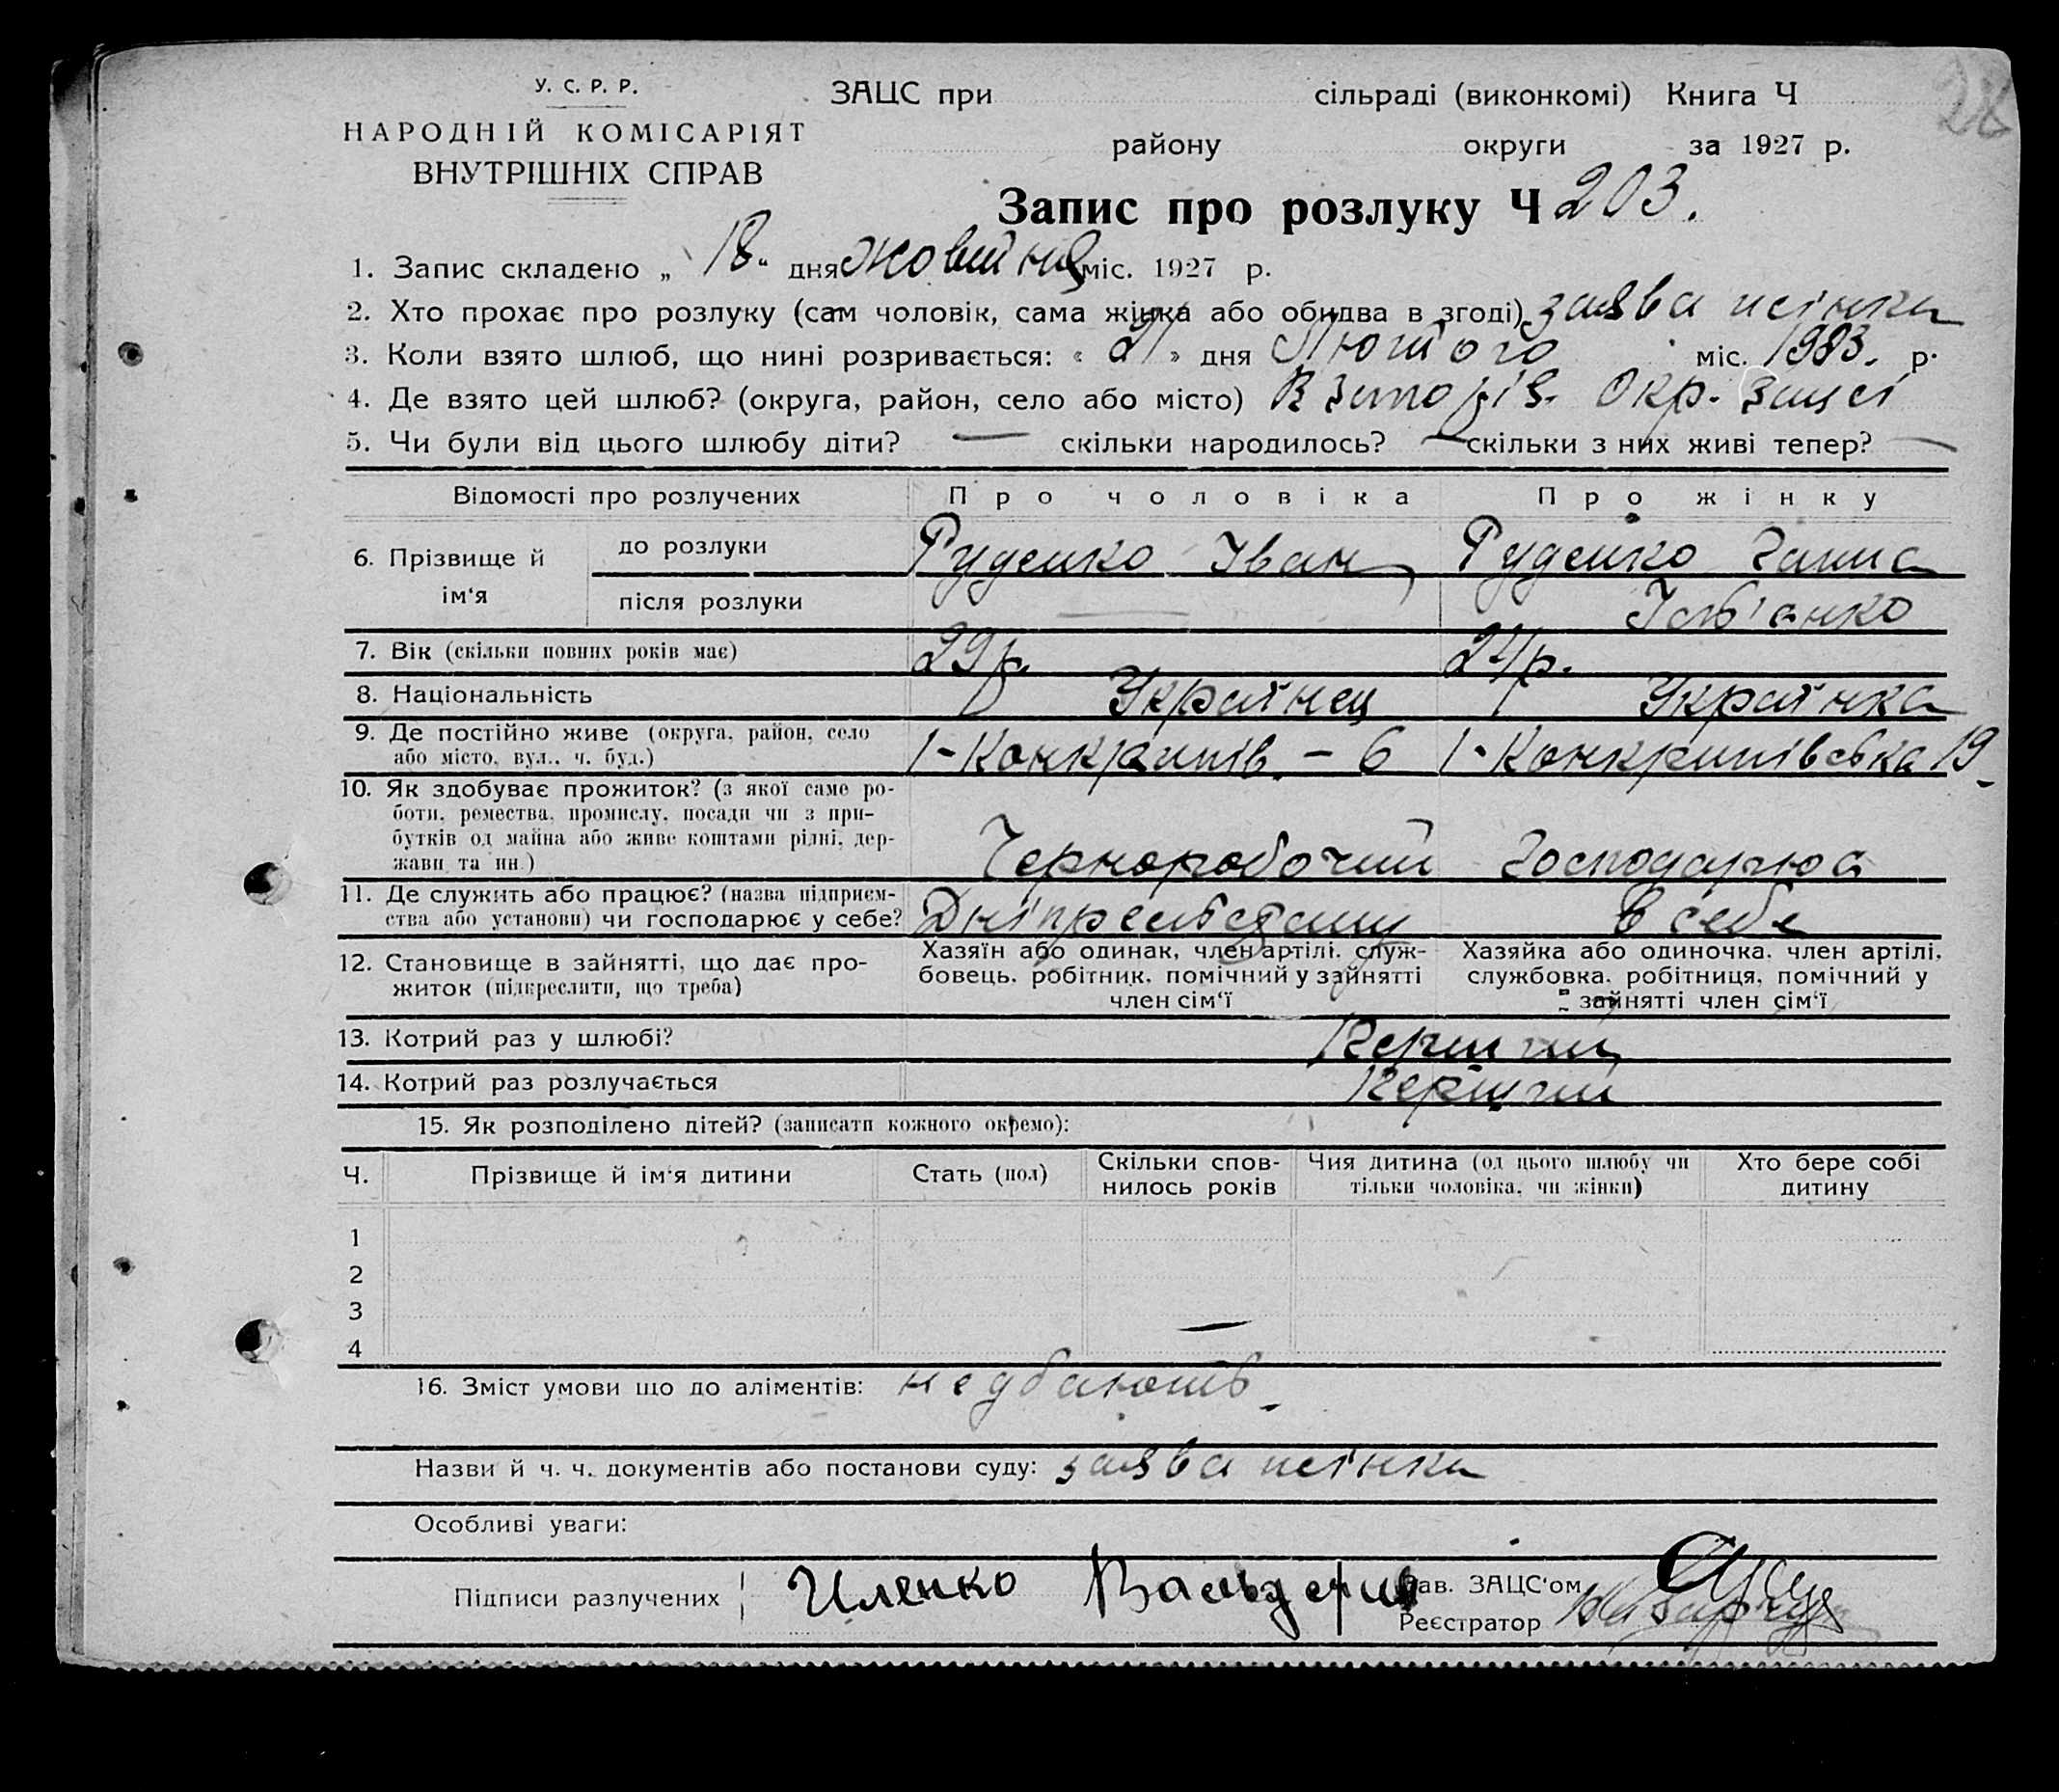 28
У. С. Р. Р.
НАРОДНІЙ КОМІСАРІЯТ
ВНУТРІШНІХ СПРАВ
ЗАЦС при сільраді (виконкомі) Книга Ч
району округи за 1927 р.
Запис про розлуку Ч 203.
1. Запис складено „ 18 “ дня жовтня міс. 1927 р.
2. Хто прохає про розлуку (сам чоловік, сама жінка або обидва в згоді) заява жінки
3. Коли взято шлюб, що нині розривається: « 21 » дня Лютого міс. р.
4. Де взято цей шлюб? (округа, район, село або місто) В Запоріз. Окр. Зацсі
5. Чи були від цього шлюбу діти? — скільки народилось? — скільки з них живі тепер? —
Відомості про розлучених Про чоловіка Про жінку
6. Прізвище й ім‘я
до розлуки Руденко Іван Руденко Ганна
після розлуки —
7. Вік (скільки повних років має) 29 р. р.
8. Національність Українец Українка
9. Де постійно живе (округа, район, село або місто, вул., ч. буд.) – 6 19
10. Як здобуває прожиток? (з якої саме ро-
боти, ремества, промислу, посади чи з при-
бутків од майна або живе коштами рідні, дер-
жави та ин.) Чорноробочий Господарює
11. Де служить або працює? (назва підприєм-
ства або установи) чи господарює у себе? в себе
12. Становище в зайнятті, що дає про-
житок (підкреслити, що треба)
Хазяїн або одинак, член артілі, служ-
бовець, робітник, помічний у зайнятті
член сім‘ї
Хазяйка або одиночка, член артілі,
службовка, робітниця, помічний у
зайнятті член сім‘ї
13. Котрий раз у шлюбі? Перший
14. Котрий раз розлучається Перший
15. Як розподілено дітей? (записати кожного окремо):
Ч. Прізвище й ім‘я дитини Стать (пол) Скільки спов-
нилось років Чия дитина (од цього шлюбу чи
тільки чоловіка, чи жінки) Хто бере собі
дитину
1
2
3
4
—
16. Зміст умови що до аліментів: не дбають
Назви й ч. ч. документів або постанови суду: заява жінки
Особливі уваги:
Підписи разлучених
Зав. ЗАЦС‘ом
Реєстратор